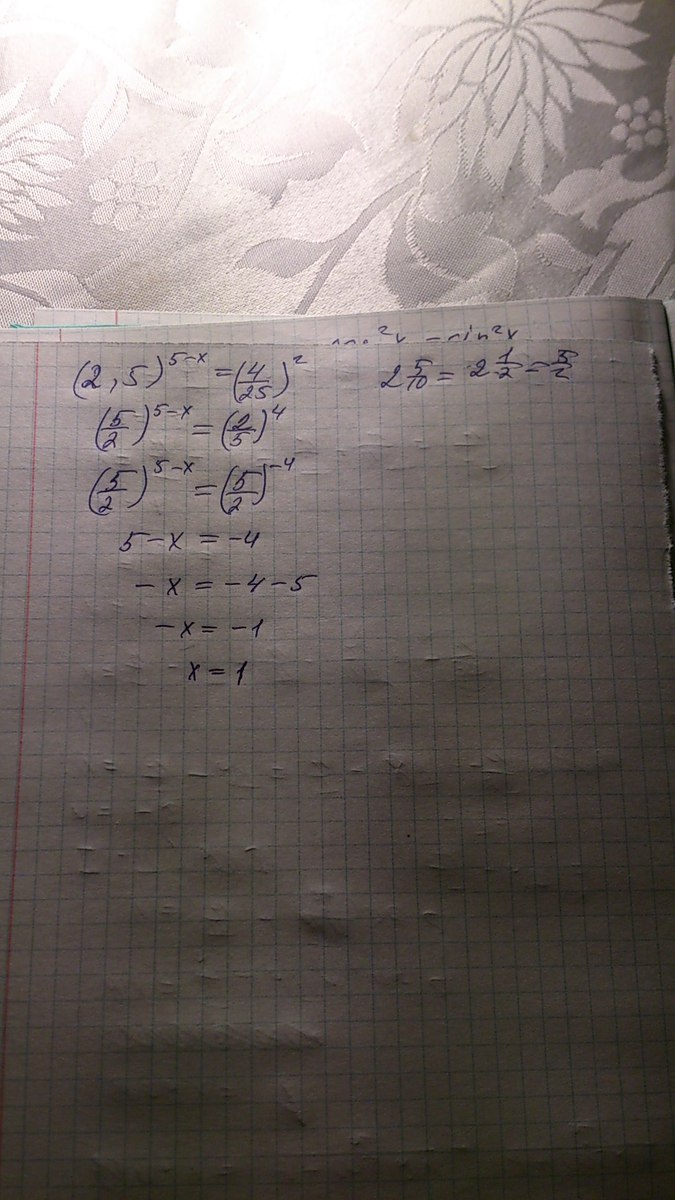 (2,5)^{5-x} = (4/25)^2 2 5/10 = 2 1/2 = 5/2
(5/2)^{5-x} = (2/5)^4
(5/2)^{5-x} = (5/2)^{-4}
5-x = -4
-x = -4-5
-x = -1
x = 1